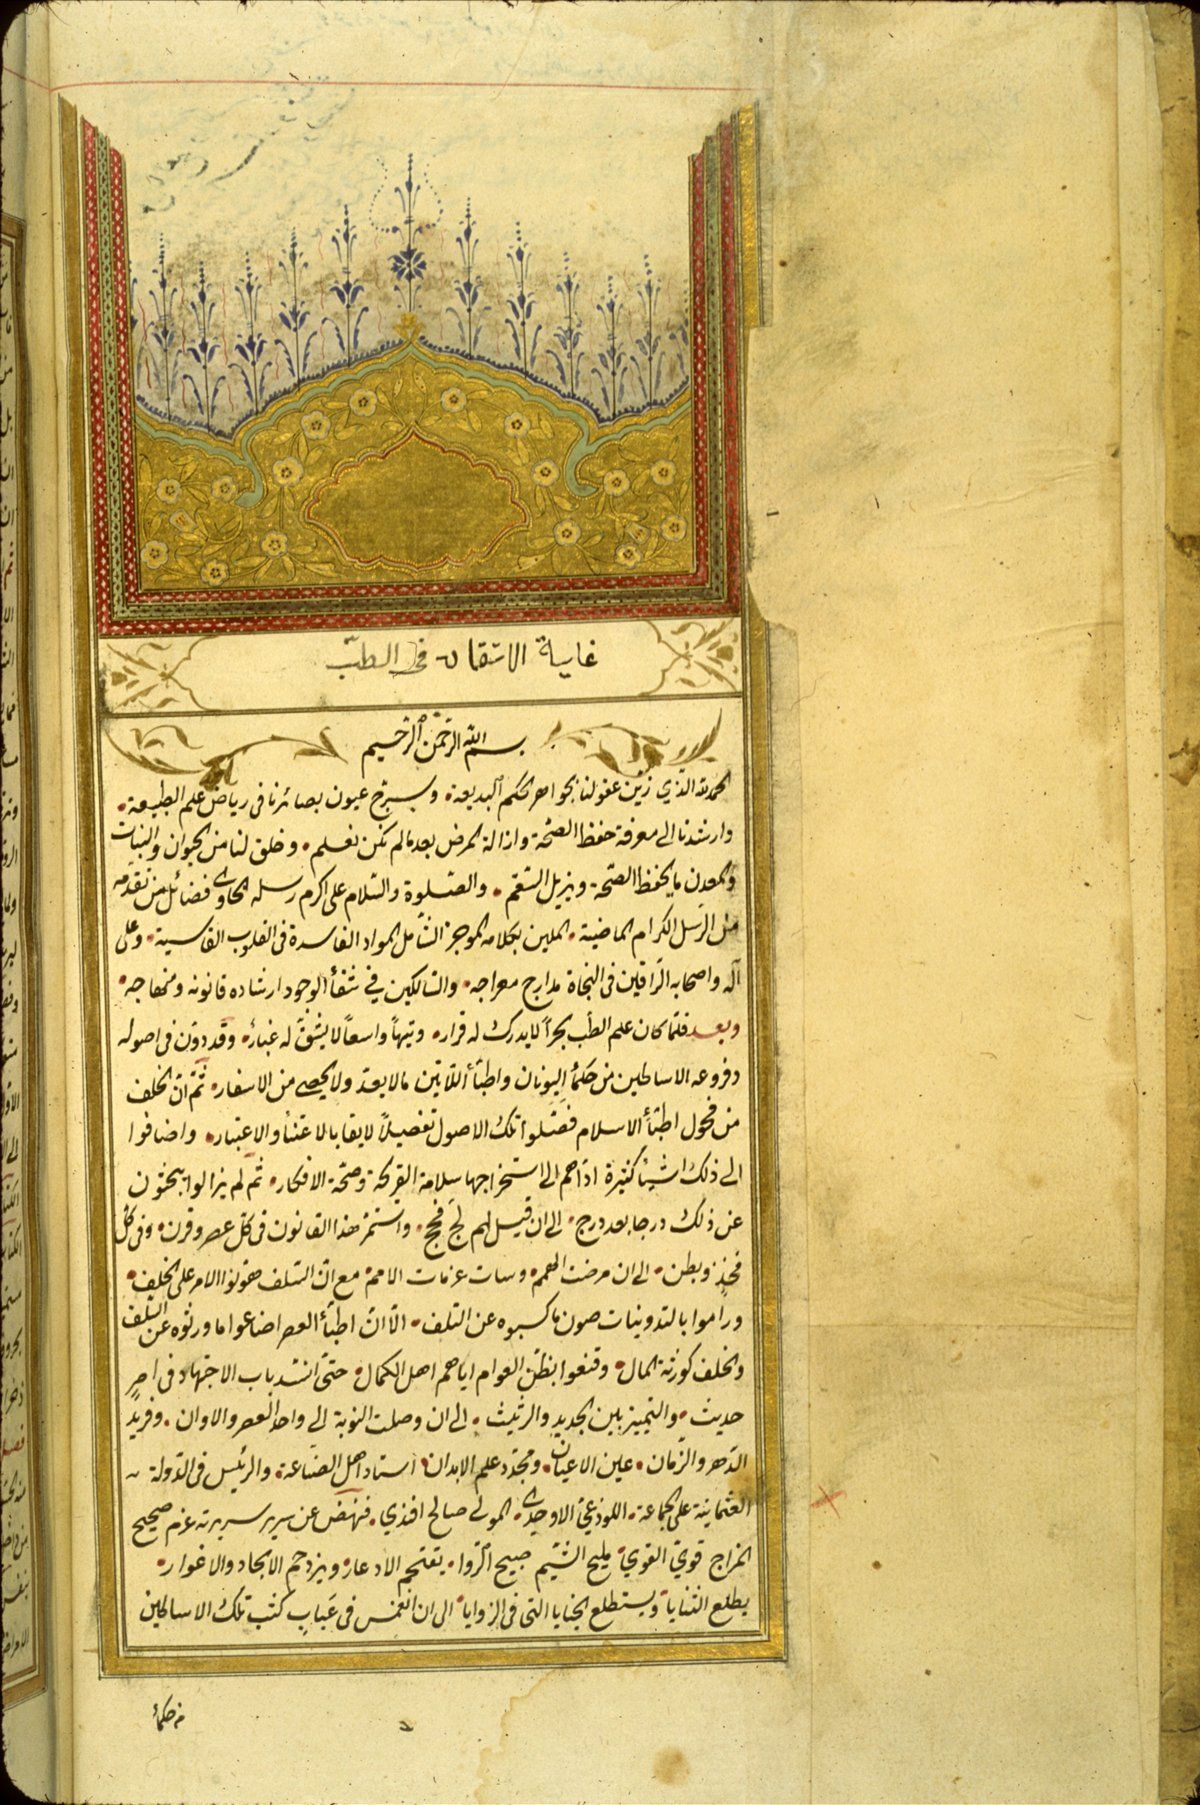 غاية الاتقان في الطب
بسم الله الرحمن الرحيم
الحمد لله الذي زين عقولنا بجواهر الحكم البديعة وسرح عيون بصائرنا في رياض علم الطبيعة
وارشدنا الى معرفة حفظ الصحة وازالة المرض بعد ما لم نكن نعلم وخلق لنا من الحيوان والنبات
والمعدن ما يحفظ الصحة ويزيل السقم والصلوة والسلام على اكرم رسله الحاوى فضائل من تقدمه
من الرسل الكرام الماضية الملين بكلامه الموجز الشامل المواد الفاسدة في القلوب القاسية وعلى
آله واصحابه الراقين في النجاة مدارج معراجه والسالكين في شفأ الوجود ارشاده قانونه ومنهاجه
وبعد فلما كان علم الطب بحراً لا يدرك له قرار وتيهاً واسعاً لا يشق له غبار وقد دون في اصوله
وفروعه الاساطين من حكمأ اليونان واطبأ اللاتين ما لا يعد ولا يحصى من الاسفار ثم ان الخلف
من فحول اطبأ الاسلام فصلوا تلك الاصول تفصيلاً لا يقابا لاعتنأ والاعتبار واضافوا
الى ذلك اشيأ كثيرة اداهم الى استخراجها سلامة القريحة وصحة الافكار ثم لم يزالوا يبحثون
عن ذلك درجا بعد درج الى ان قيل لهم لج فحج واستمر هذا القانون في كل عصر وقرن وفي كل
فخذ وبطن الى ان مرضت الهمم وسات عزمات الامم مع ان السلف هونوا الامر على الخلف
وراموا بالتدوينات صون ما كسبوه عن التلف الا ان اطبأ العصر اضاعوا ما ورثوه عن السلف
والخلف كورثة المال وقنعوا بظن العوام اياهم اهل الكمال حتى انسد باب الاجتهاد في امر
حديث والتمييز بين الجديد والرثيث الى ان وصلت النوبة الى واحد العصر والاوان وفريد
الدهر والزمان عين الاعيان ومجدد علم الابدان استاد اهل الصناعة والرئيس في الدولة
العثمانية على الجماعة اللوذعي الاوحدى المولى صالح افندي فنهض عن سرير سريرته عزم صحيح
المزاج قوي القوى مليح الشيم صبيح الروا يقتحم الادعار ويزدحم الانجاد والاغوار
يطلع الثنايا ويستطلع الخبايا التى في الزوايا الى ان انغمس في عباب كتب تلك الاساطين
من حكمأ